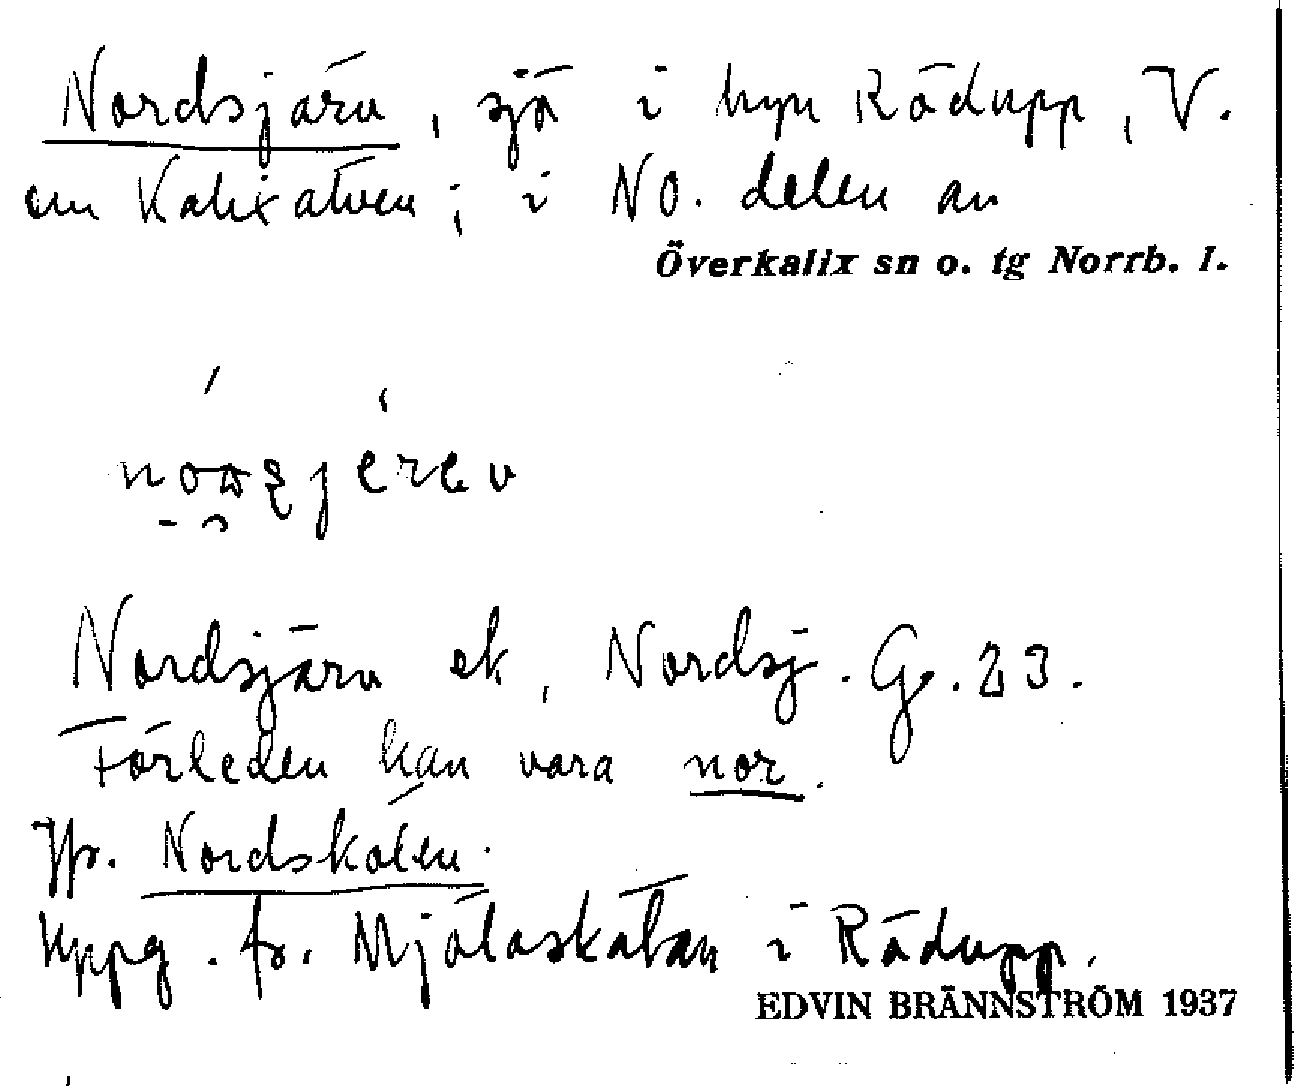 Nordsjärv, sjö i byn Rödupp, V.
om Kalixälven; i NO. delen av
Överkalix sn o. tg Norrb. l.
Nordsjärv ek, Nordsj. Ge. 23.
Förleden kan vara nor.
Jfr. Nordskölen.
Uppg. fr. Mjölaskatan i Rödupp.
EDVIN BRÄNNSTRÖM 1937